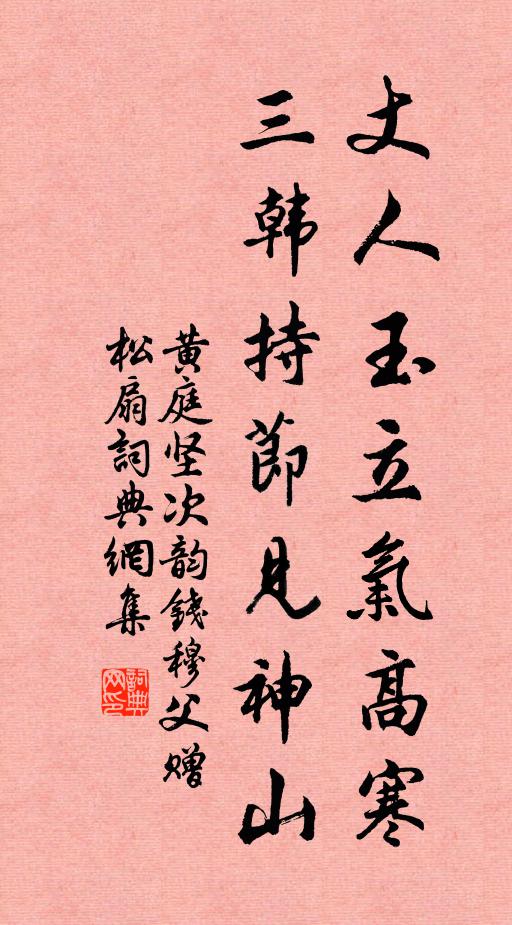 丈人玉立氣高寒
三韩持節見神山
黄庭坚次韵錢穆父赠
松扇詞典網集
詞典网印